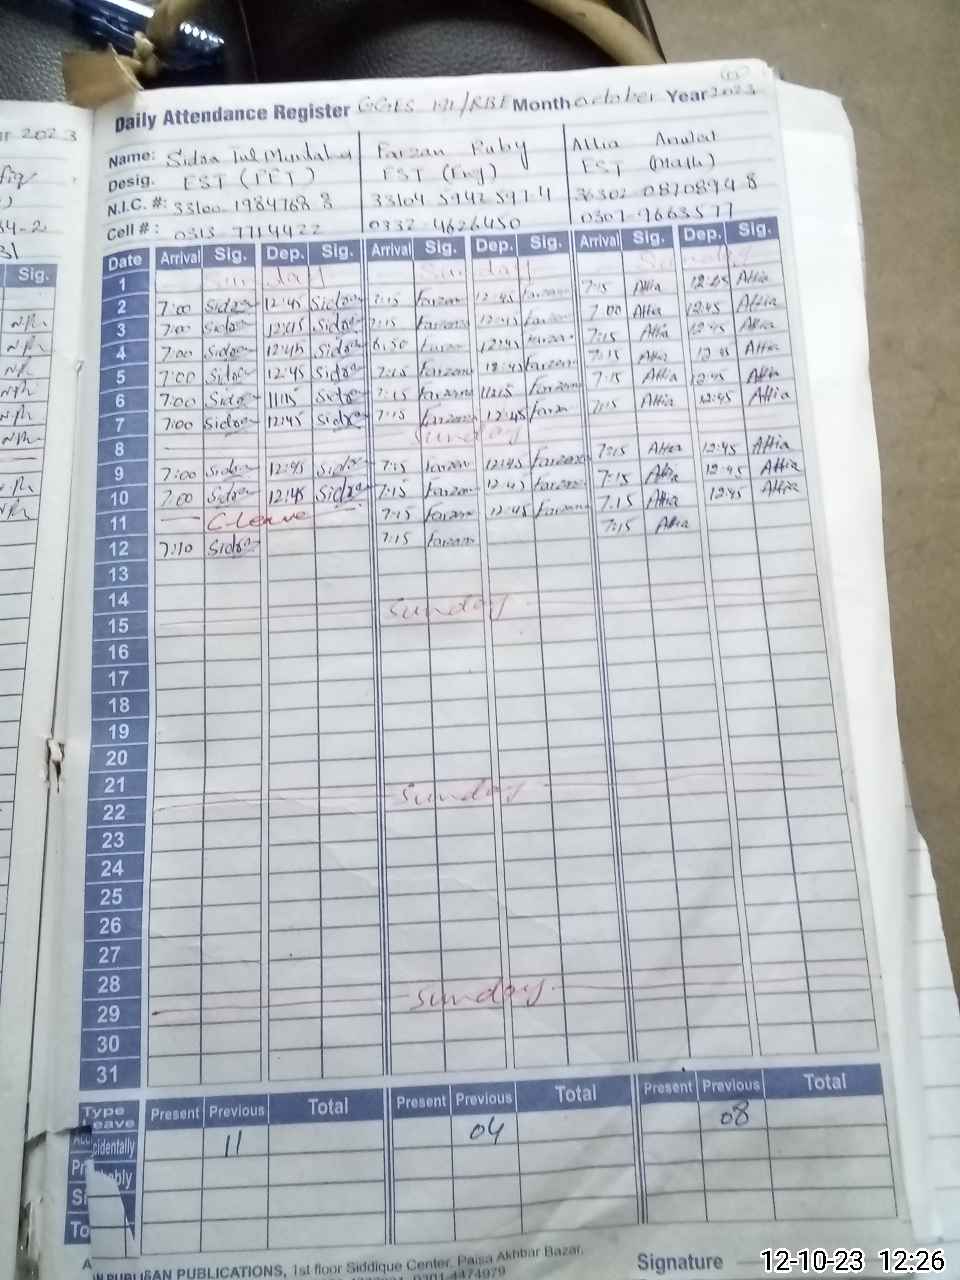 Daily Attendance Register GGES 121/RBF Month October Year 2023
Name: Sidra Tul Muntaha Farzan Ruby Attia Anwal
Desig. EST (PET) EST (Eng) EST (Math)
N.I.C. #: 33100 1984768 8 33104 5942597 4 36302 0820894 8
Cell #: 0313 7714422 0332-4626450 0307-9663577
Date Arrival Sig. Dep. Sig. Arrival Sig. Dep. Sig. Arrival Sig. Dep. Sig.
1 Sunday Sunday Sunday
2 7:00 Sidra 12:45 Sidra 7:15 Farzan 12:45 Farzan 7:15 Attia 12:45 Attia
3 7:00 Sidra 12:45 Sidra 7:15 Farzan 12:45 Farzan 7:00 Attia 12:45 Attia
4 7:00 Sidra 12:45 Sidra 6:50 Farzan 12:45 Farzan 7:15 Attia 12:45 Attia
5 7:00 Sidra 12:45 Sidra 7:15 Farzan 12:45 Farzan 7:15 Attia 12:45 Attia
6 7:00 Sidra 11:15 Sidra 7:15 Farzan 11:15 Farzan 7:15 Attia 12:45 Attia
7 7:00 Sidra 12:45 Sidra 7:15 Farzan 12:45 Farzan 7:15 Attia 12:45 Attia
8 Sunday
9 7:00 Sidra 12:45 Sidra 7:15 Farzan 12:45 Farzan 7:15 Attia 12:45 Attia
10 7:00 Sidra 12:45 Sidra 7:15 Farzan 12:45 Farzan 7:15 Attia 12:45 Attia
11 C-Leave 7:15 Farzan 12:45 Farzan 7:15 Attia 12:45 Attia
12 7:10 Sidra 7:15 Farzan 7:15 Attia
13
14
15 Sunday
16
17
18
19
20
21
22 Sunday
23
24
25
26
27
28
29 Sunday
30
31
Type Leave Present Previous Total Present Previous Total Present Previous Total
cidentally 11 04 08
PUBLICATIONS, 1st floor Siddique Center, Paisa Akhbar Bazar,
0301-4474979
Signature
12-10-23 12:26
2023
Sig.